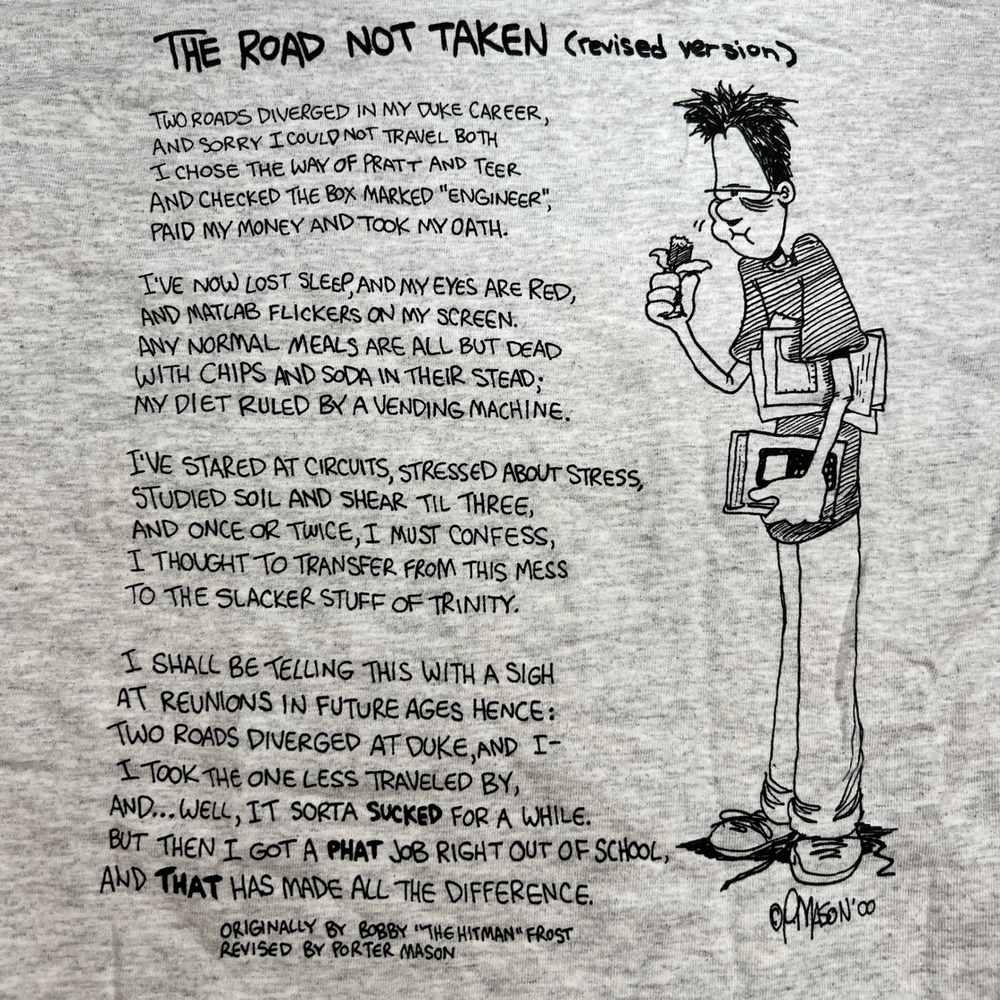 THE ROAD NOT TAKEN (revised version)
TWO ROADS DIVERGED IN MY DUKE CAREER,
AND SORRY I COULD NOT TRAVEL BOTH
I CHOSE THE WAY OF PRATT AND TEER
AND CHECKED THE BOX MARKED "ENGINEER",
PAID MY MONEY AND TOOK MY OATH.
I'VE NOW LOST SLEEP, AND MY EYES ARE RED,
AND MATLAB FLICKERS ON MY SCREEN.
ANY NORMAL MEALS ARE ALL BUT DEAD
WITH CHIPS AND SODA IN THEIR STEAD;
MY DIET RULED BY A VENDING MACHINE.
I'VE STARED AT CIRCUITS, STRESSED ABOUT STRESS,
STUDIED SOIL AND SHEAR TIL THREE,
AND ONCE OR TWICE, I MUST CONFESS,
I THOUGHT TO TRANSFER FROM THIS MESS
TO THE SLACKER STUFF OF TRINITY.
I SHALL BE TELLING THIS WITH A SIGH
AT REUNIONS IN FUTURE AGES HENCE:
TWO ROADS DIVERGED AT DUKE, AND I-
I TOOK THE ONE LESS TRAVELED BY,
AND...WELL, IT SORTA SUCKED FOR A WHILE.
BUT THEN I GOT A PHAT JOB RIGHT OUT OF SCHOOL,
AND THAT HAS MADE ALL THE DIFFERENCE.
ORIGINALLY BY BOBBY "THE HITMAN" FROST
REVISED BY PORTER MASON
©P.MASON '00